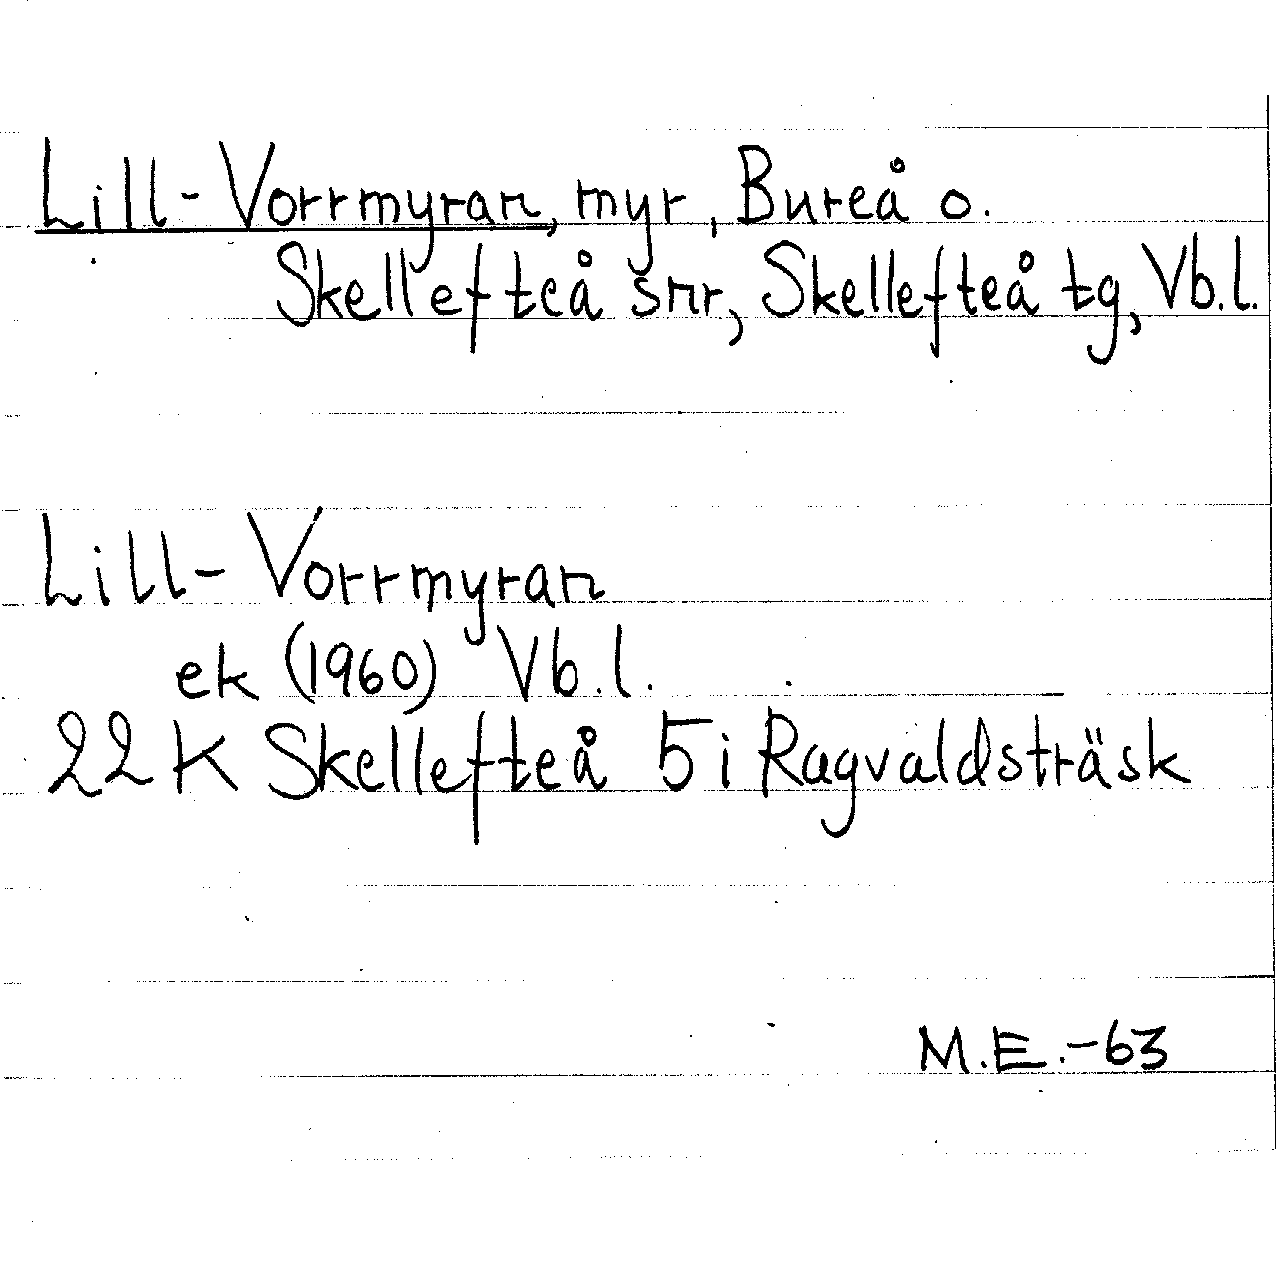 Lill-Vorrmyran, myr, Bureå o.
Skellefteå snr, Skellefteå tg, Vb.l.
Lill-Vorrmyran
ek (1960) Vb.l.
22 K Skellefteå 5 i Ragvaldsträsk
M.E.-63